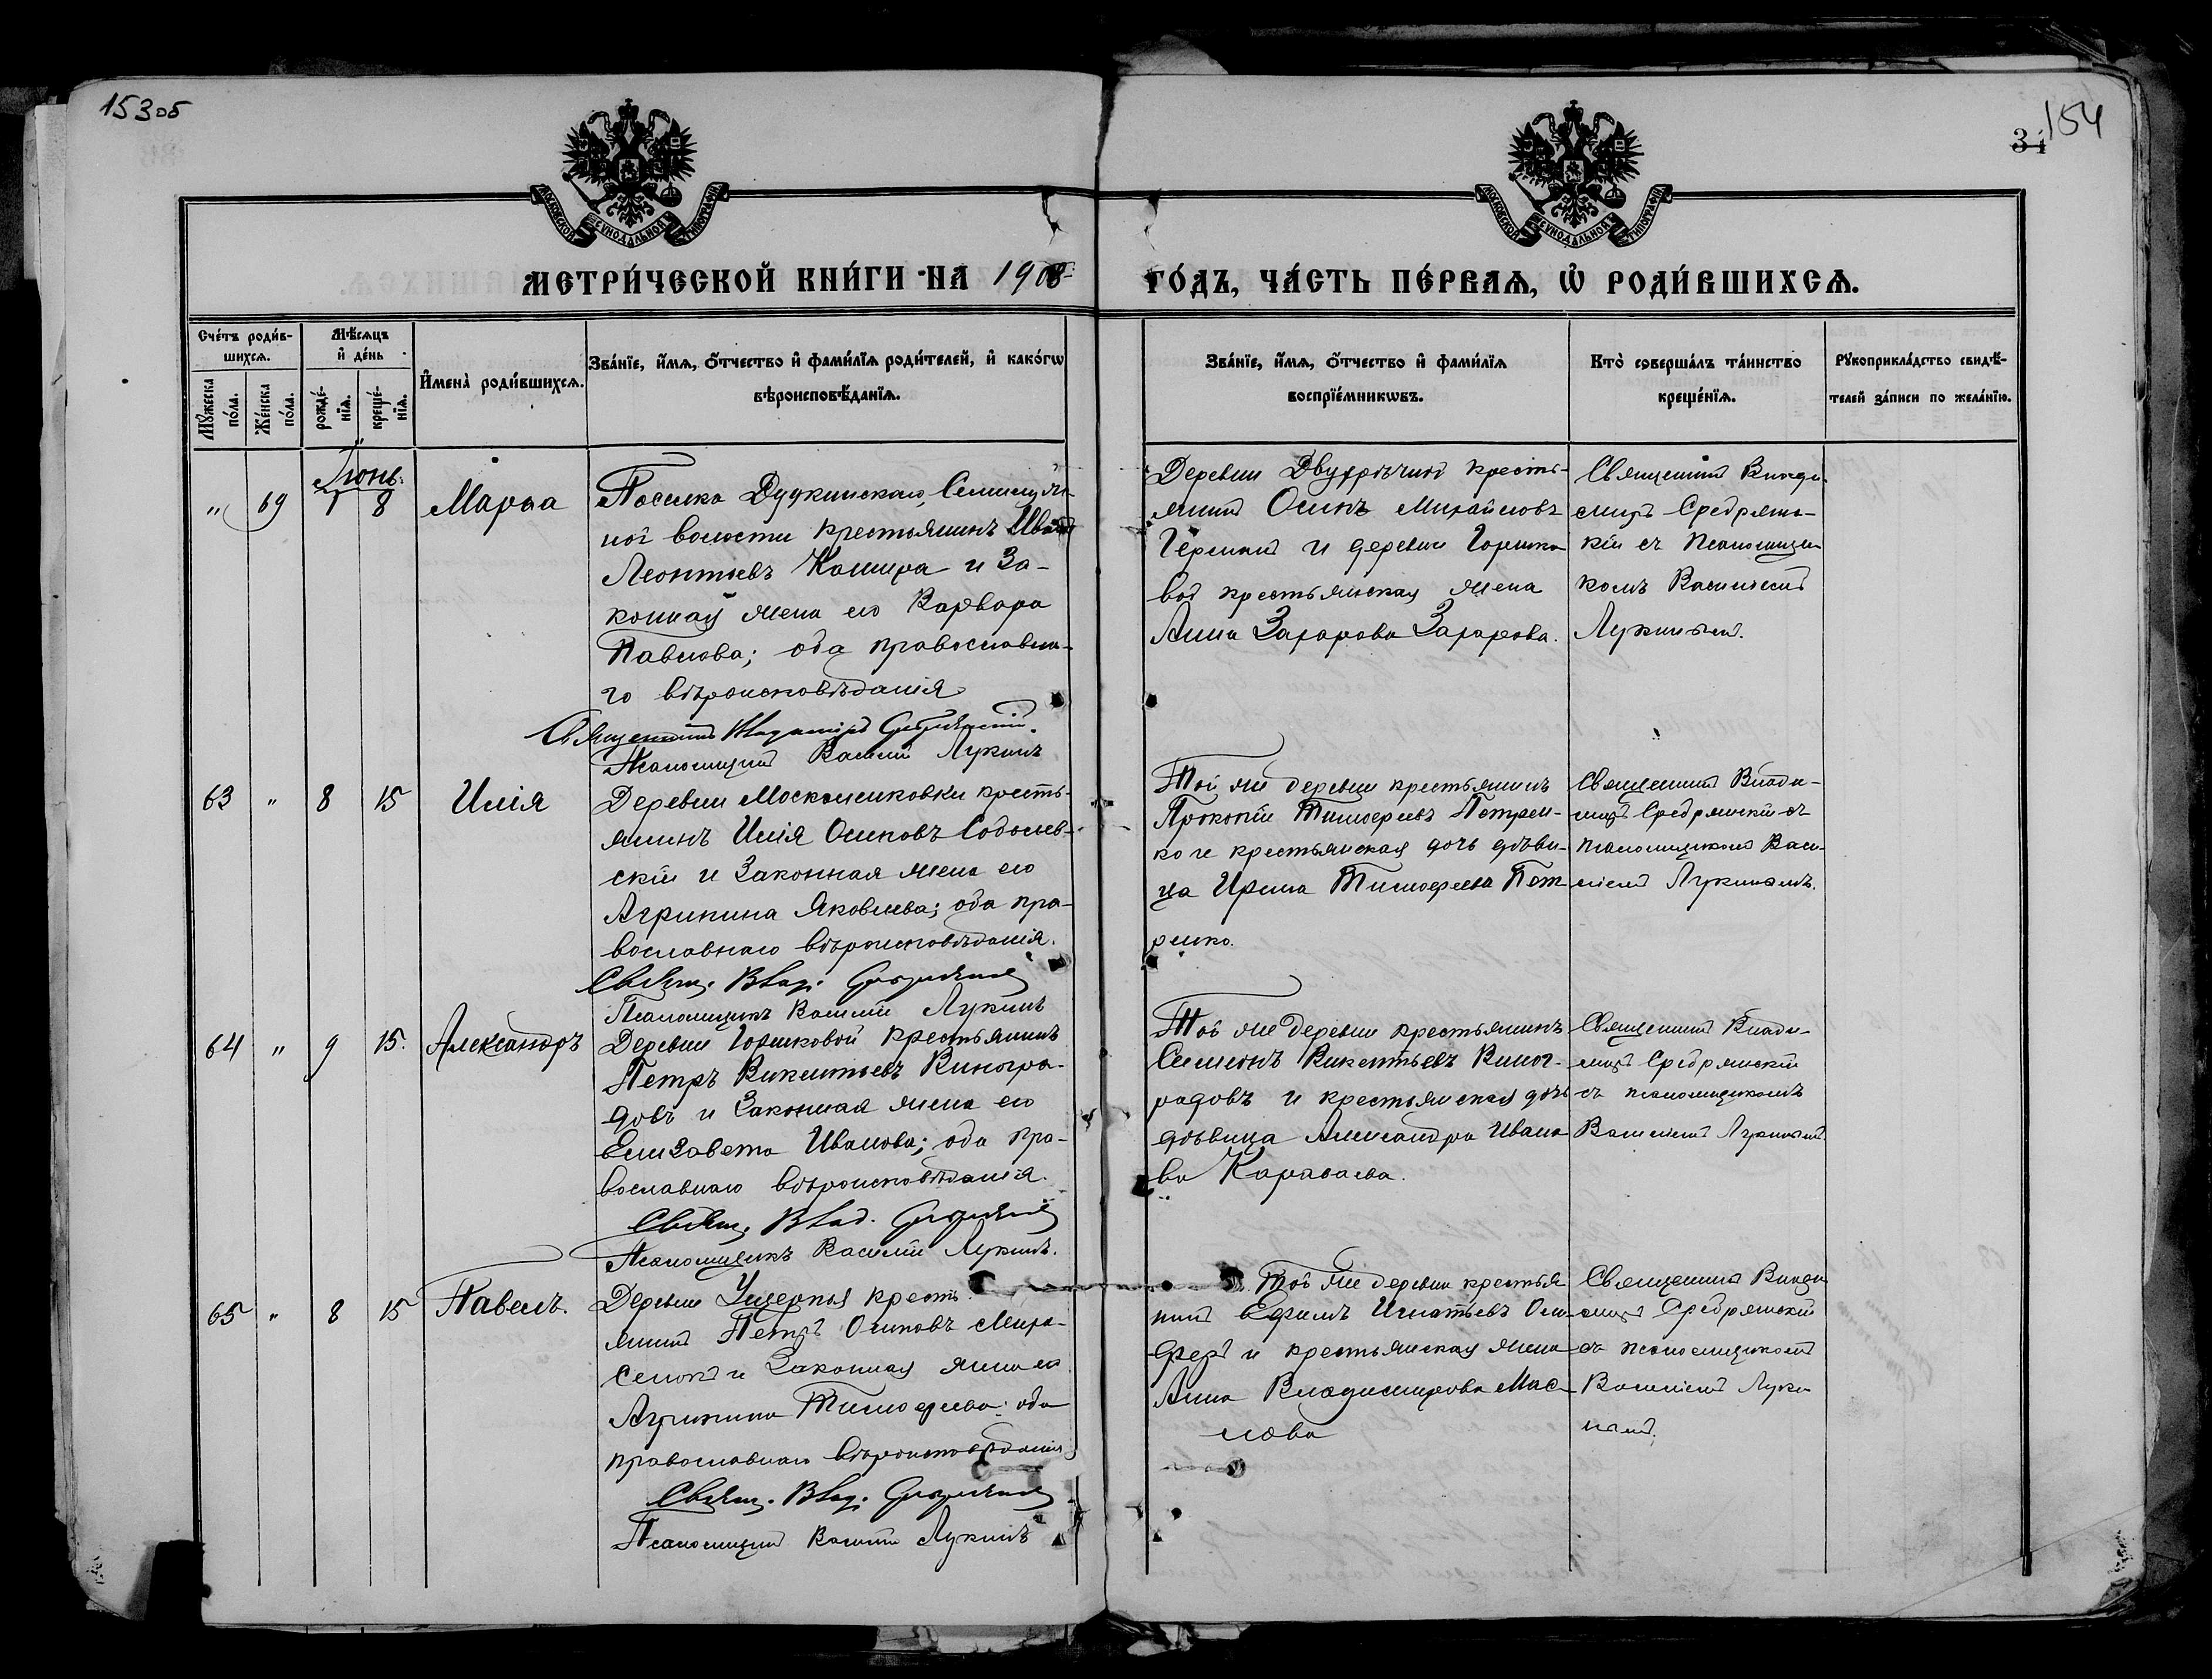 153об
154
34
МОСКОВСКОЙ СѴНОДАЛЬНОЙ ТИПОГРАФІИ
МОСКОВСКОЙ СѴНОДАЛЬНОЙ ТИПОГРАФІИ
МЕТРИ́ЧЕСКОЙ КНИ́ГИ НА 1908
ГО́ДЪ, ЧА́СТЬ ПЕ́РВАѦ, Ѡ҆ РОДИ́ВШИХСѦ.
Сче́тъ роди́в-
шихсѧ.
Мꙋ́жеска по́ла.
Же́нска по́ла.
Мѣ́сѧцъ
и҆ де́нь
рожде́-
нїѧ.
креще́-
нїѧ.
И҆мена̀ роди́вшихсѧ.
Зва́нїе, и҆́мѧ, ѻ҆́тчество и҆ фами́лїѧ роди́телей, и҆ како́гѡ
вѣроисповѣ́данїѧ.
Зва́нїе, и҆́мѧ, ѻ҆́тчество и҆ фами́лїѧ
воспрїе́мникѡвъ.
Кто̀ соверша́лъ та́инство
креще́нїѧ.
Рꙋкоприкла́дство свидѣ́-
телей за́писи по жела́нїю.
Іюнь.
" 69 1 8 Марѳа
Поселка Дудкинскаго,
ной волости крестьянинъ Иванъ
Леонтьевъ Кашира и За-
конная жена его Варвара
Павлова; оба православна-
го вѣроисповѣданія
Священникъ Владиміръ Сребрянскій.
Псаломщикъ Василій Лукинъ
Деревни Двурѣчной кресть-
янинъ Осипъ Михайловъ
и деревни Горшко
вой крестьянская жена
Анна Захарова Захарова.
Священникъ Влади-
миръ Сребрянс-
кій съ псаломщи
комъ Василіемъ
Лукинымъ.
63 " 8 15 Илія
Деревни Москаленковки кресть-
янинъ Илія Осиповъ Соболев-
скій и Законная жена его
Агрипина Яковлева; оба пра-
вославнаго вѣроисповѣданія.
Свящ. Влад. Сребрянскій
Псаломщикъ Василій Лукинъ
Той же деревни крестьянинъ
Прокопій Тимоѳеевъ Петрен-
ко и крестьянская дочь дѣви-
ца Ирина Тимоѳеева Пет-
ренко.
Священникъ Влади-
миръ Сребрянскій съ
псаломщикомъ Васи-
ліемъ Лукинымъ.
64 " 9 15. Александръ
Деревни Горшковой крестьянинъ
Петръ Викентьевъ Виногра-
довъ и Законная жена его
Елизавета Иванова; оба пра-
вославнаго вѣроисповѣданія.
Свящ. Влад. Сребрянскій
Псаломщикъ Василій Лукинъ.
Той же деревни крестьянинъ
Симеонъ Викентьевъ Виног-
радовъ и крестьянская дочь
дѣвица Александра Ивано
ва Караваева.
Священникъ Влади-
миръ Сребрянскій
съ псаломщикомъ
Василіемъ Лукинымъ.
65 " 8 15 Павелъ.
Деревни кресть
янинъ Петръ Осиповъ Мира-
сенокъ и Законная жена его
Агрипина Тимоѳеева; оба
православнаго вѣроисповѣданія
Свящ. Влад. Сребрянскій
Псаломщикъ Василій Лукинъ
Той же деревни крестья
нинъ Ефимъ Игнатьевъ
и крестьянская жена
Анна Владимирова Мас-
лова
Священникъ Влади
миръ Сребрянскій
съ псаломщикомъ
Василіемъ Луки
нымъ.